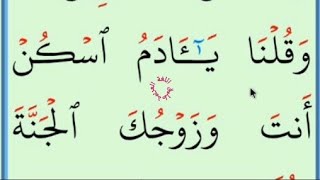 وَقُلْنَا يَـٰٓـَٔادَمُ ٱسْكُنْ
أَنتَ وَزَوْجُكَ ٱلْجَنَّةَ